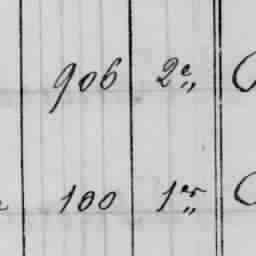 906 2e„
100 1er„